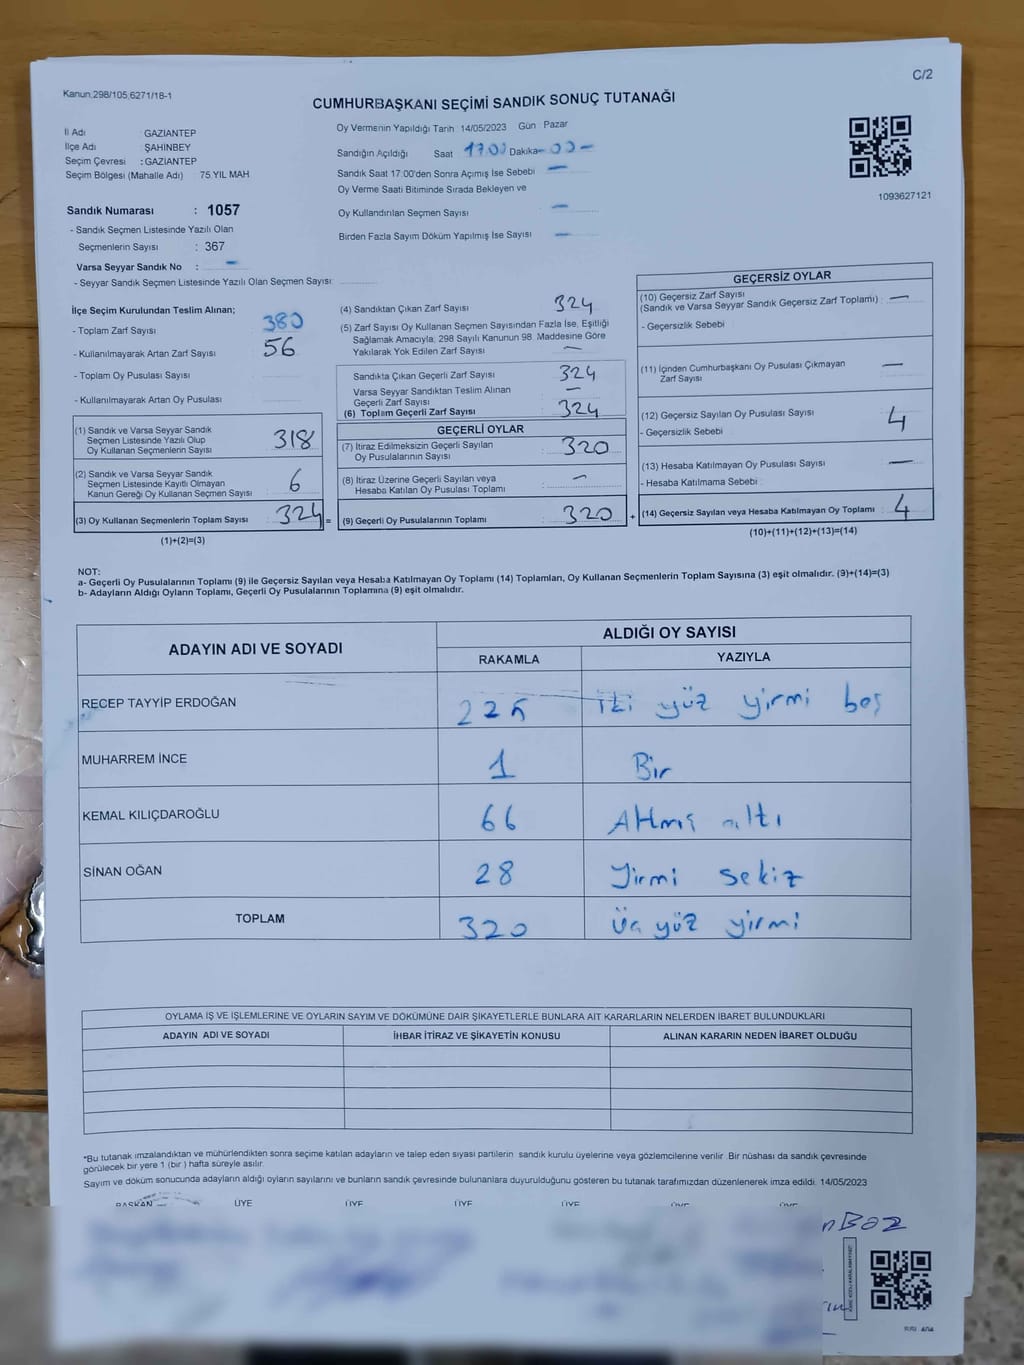 C/2
Kanun.298/105,6271/18-1
CUMHURBAŞKANI SEÇİMİ SANDIK SONUÇ TUTANAĞI
İl Adı : GAZIANTEP
İlçe Adı : ŞAHİNBEY
Seçim Çevresi : GAZIANTEP
Seçim Bölgesi (Mahalle Adı) 75.YIL MAH
Oy Vermenin Yapıldığı Tarih 14/05/2023 Gün Pazar
Sandığın Açıldığı Saat 17.00 Dakika - 00 -
Sandık Saat 17.00'den Sonra Açımış İse Sebebi —
Oy Verme Saati Bitiminde Sırada Bekleyen ve
Oy Kullandırılan Seçmen Sayısı —
Birden Fazla Sayım Döküm Yapılmış İse Sayısı —
1093627121
Sandık Numarası : 1057
- Sandık Seçmen Listesinde Yazılı Olan
Seçmenlerin Sayısı : 367
Varsa Seyyar Sandık No : —
- Seyyar Sandık Seçmen Listesinde Yazılı Olan Seçmen Sayısı:
İlçe Seçim Kurulundan Teslim Alınan;
- Toplam Zarf Sayısı 380
- Kullanılmayarak Artan Zarf Sayısı 56
- Toplam Oy Pusulası Sayısı
- Kullanılmayarak Artan Oy Pusulası
(1) Sandık ve Varsa Seyyar Sandık
Seçmen Listesinde Yazılı Olup
Oy Kullanan Seçmenlerin Sayısı 318
(2) Sandık ve Varsa Seyyar Sandık
Seçmen Listesinde Kayıtlı Olmayan
Kanun Gereği Oy Kullanan Seçmen Sayısı 6
(3) Oy Kullanan Seçmenlerin Toplam Sayısı 324 =
(1)+(2)=(3)
(4) Sandıktan Çıkan Zarf Sayısı 324
(5) Zarf Sayısı Oy Kullanan Seçmen Sayısından Fazla İse, Eşitliği
Sağlamak Amacıyla; 298 Sayılı Kanunun 98. Maddesine Göre
Yakılarak Yok Edilen Zarf Sayısı —
Sandıkta Çıkan Geçerli Zarf Sayısı 324
Varsa Seyyar Sandıktan Teslim Alınan
Geçerli Zarf Sayısı —
(6) Toplam Geçerli Zarf Sayısı 324
GEÇERLİ OYLAR
(7) İtiraz Edilmeksizin Geçerli Sayılan
Oy Pusulalarının Sayısı 320
(8) İtiraz Üzerine Geçerli Sayılan veya
Hesaba Katılan Oy Pusulası Toplamı —
(9) Geçerli Oy Pusulalarının Toplamı 320 +
GEÇERSİZ OYLAR
(10) Geçersiz Zarf Sayısı
(Sandık ve Varsa Seyyar Sandık Geçersiz Zarf Toplamı) : —
- Geçersizlik Sebebi
(11) İçinden Cumhurbaşkanı Oy Pusulası Çıkmayan
Zarf Sayısı —
(12) Geçersiz Sayılan Oy Pusulası Sayısı 4
- Geçersizlik Sebebi
(13) Hesaba Katılmayan Oy Pusulası Sayısı —
- Hesaba Katılmama Sebebi
(14) Geçersiz Sayılan veya Hesaba Katılmayan Oy Toplamı : 4
(10)+(11)+(12)+(13)=(14)
NOT:
a- Geçerli Oy Pusulalarının Toplamı (9) ile Geçersiz Sayılan veya Hesaba Katılmayan Oy Toplamı (14) Toplamları, Oy Kullanan Seçmenlerin Toplam Sayısına (3) eşit olmalıdır. (9)+(14)=(3)
b- Adayların Aldığı Oyların Toplamı, Geçerli Oy Pusulalarının Toplamına (9) eşit olmalıdır.
ADAYIN ADI VE SOYADI
ALDIĞI OY SAYISI
RAKAMLA YAZIYLA
RECEP TAYYİP ERDOĞAN 225 İki yüz yirmi beş
MUHARREM İNCE 1 Bir
KEMAL KILIÇDAROĞLU 66 Altmış altı
SİNAN OĞAN 28 Yirmi sekiz
TOPLAM 320 Üç yüz yirmi
OYLAMA İŞ VE İŞLEMLERİNE VE OYLARIN SAYIM VE DÖKÜMÜNE DAİR ŞİKAYETLERLE BUNLARA AİT KARARLARIN NELERDEN İBARET BULUNDUKLARI
ADAYIN ADI VE SOYADI İHBAR İTİRAZ VE ŞİKAYETİN KONUSU ALINAN KARARIN NEDEN İBARET OLDUĞU
*Bu tutanak imzalandıktan ve mühürlendikten sonra seçime katılan adayların ve talep eden siyasi partilerin sandık kurulu üyelerine veya gözlemcilerine verilir. Bir nüshası da sandık çevresinde
görülecek bir yere 1 (bir) hafta süreyle asılır.
Sayım ve döküm sonucunda adayların aldığı oyların sayılarını ve bunların sandık çevresinde bulunanlara duyurulduğunu gösteren bu tutanak tarafımızdan düzenlenerek imza edildi. 14/05/2023
BAŞKAN ÜYE ÜYE ÜYE ÜYE ÜYE ÜYE